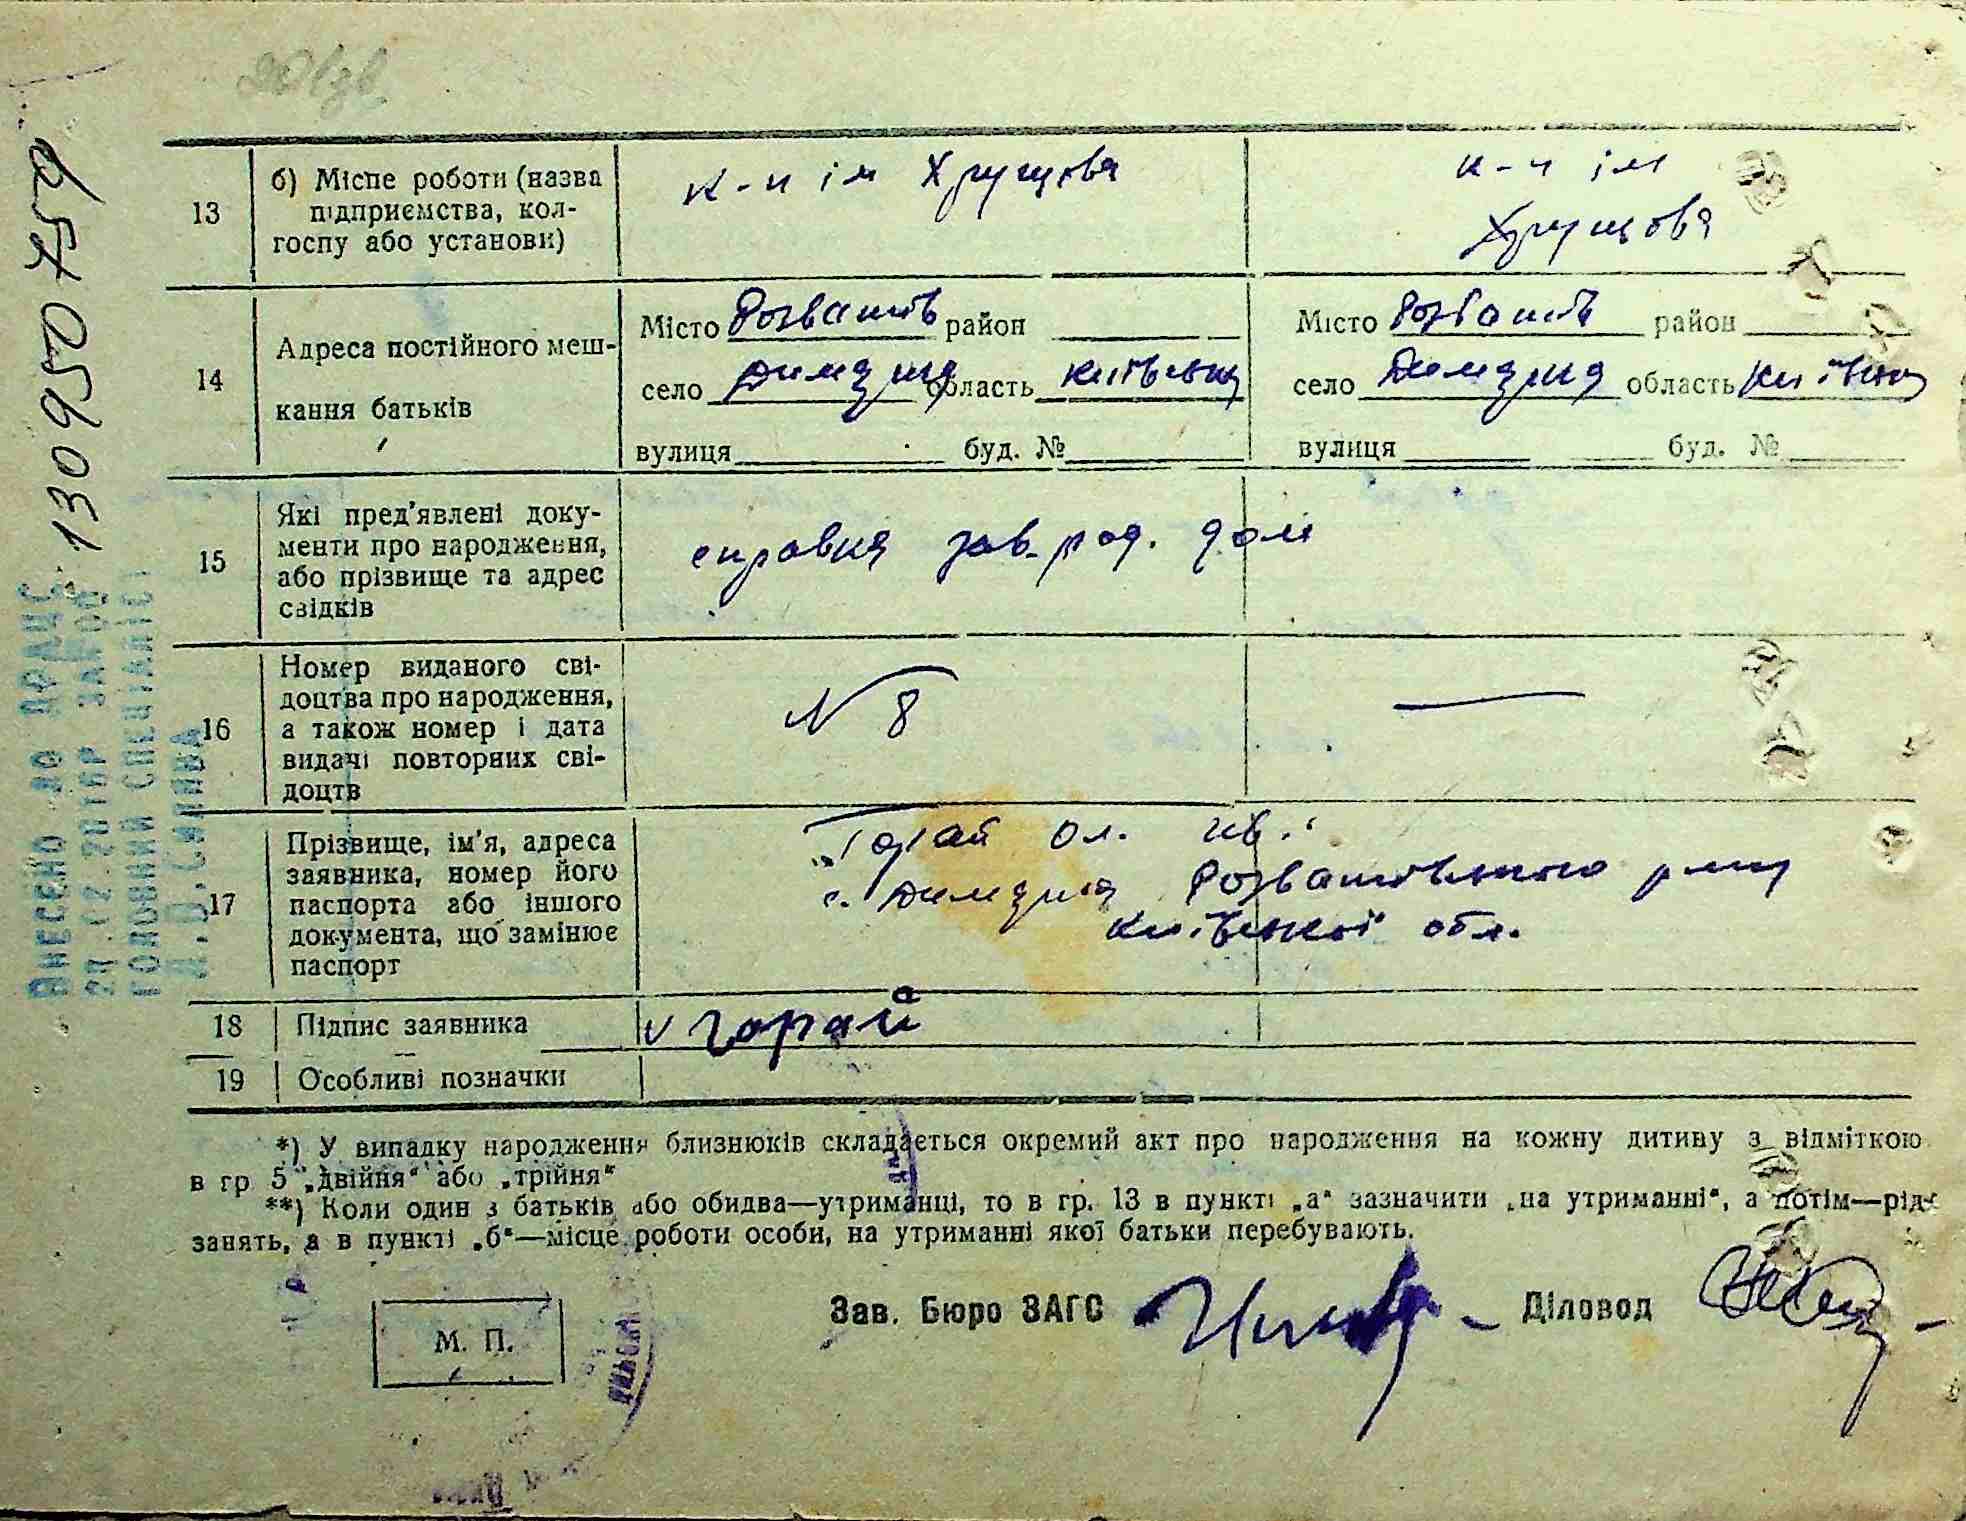 13
б) Місце роботи (назва
підприємства, кол-
госпу або установи)
к-п ім Хрущова
к-п ім
Хрущова
14
Адреса постійного меш-
кання батьків
Місто Розважів район
село Димарка область Київська
вулиця буд. №
Місто Розважів район
село Димарка область Київська
вулиця буд. №
15
Які пред'явлені доку-
менти про народження,
або прізвище та адрес
свідків
справка зав. род. дом
16
Номер виданого сві-
доцтва про народження,
а також номер і дата
видачі повторних сві-
доцтв
N 8
17
Прізвище, ім'я, адреса
заявника, номер його
паспорта або іншого
документа, що замінює
паспорт
Горай Ол. Ів.
с. Димарка Розважівського р-ну
Київської обл.
18
Підпис заявника
Горай
19
Особливі позначки
*) У випадку народження близнюків складається окремий акт про народження на кожну дитину з відміткою
в гр 5 „двійня“ або „трійня“
**) Коли один з батьків або обидва—утриманці, то в гр. 13 в пункті „а“ зазначити „на утриманні“, а потім—рід
занять, а в пункті „б“—місце роботи особи, на утриманні якої батьки перебувають.
М. П.
Зав. Бюро ЗАГС
Діловод
130950759
ВНЕСЕНО ДО ДРАЦС
ГОЛОВНИЙ СПЕЦІАЛІСТ